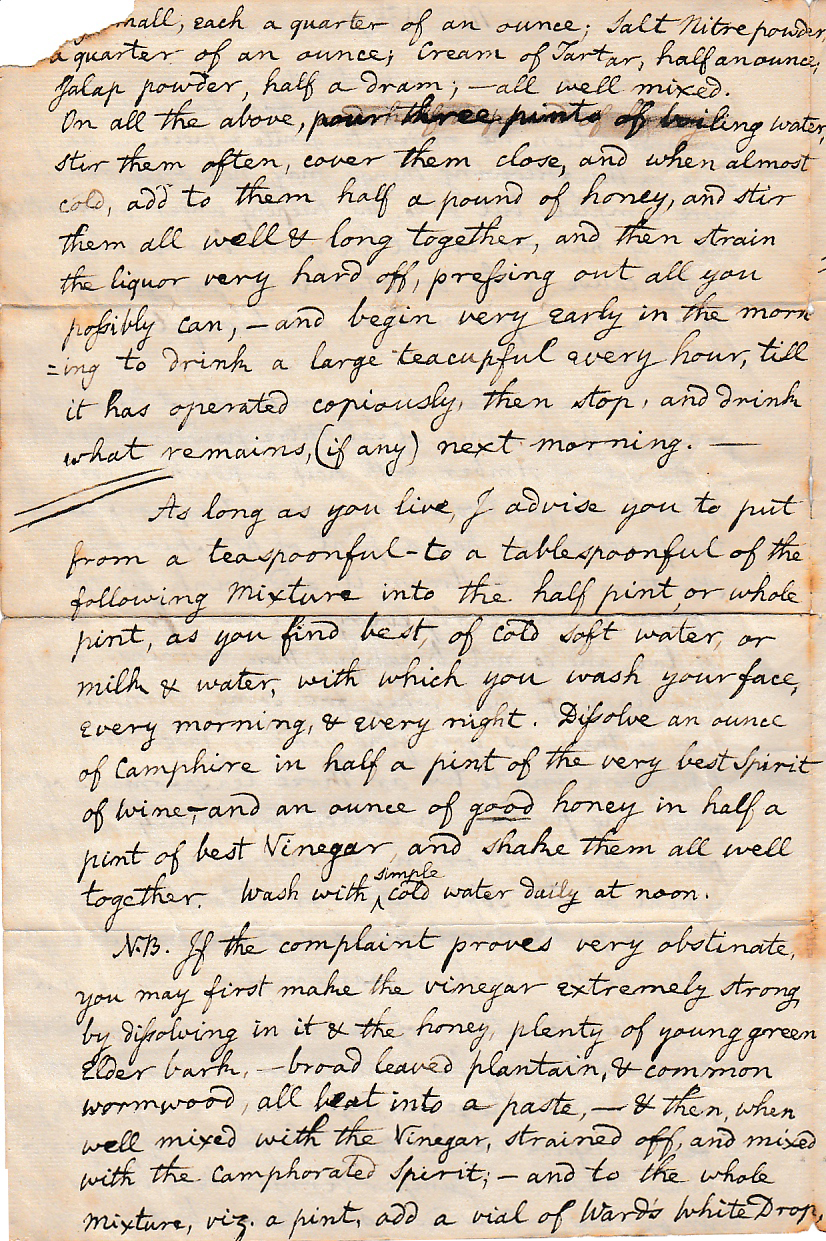 small, each a quarter of an ounce; Salt Nitre powder,
a quarter of an ounce; Cream of Tartar, half an ounce;
Jalap powder, half a dram; – all well mixed.
On all the above, pour three pints of boiling water,
stir them often, cover them close, and when almost
cold, add to them half a pound of honey, and stir
them all well & long together, and then strain
the liquor very hard off, preſsing out all you
poſsibly can, – and begin very early in the morn
=ing to drink a large teacupful every hour, till
it has operated copiously, then stop, and drink
what remains, (if any) next morning. —
As long as you live, I advise you to put
from a teaspoonful - to a tablespoonful of the
following Mixture into the half pint, or whole
pint, as you find best, of cold soft water, or
milk & water, with which you wash your face,
every morning, & every night. Diſsolve an ounce
of Camphire in half a pint of the very best Spirit
of Wine, – and an ounce of good honey in half a
pint of best Vinegar, and shake them all well
together. Wash with simple cold water daily at noon.
N.B. If the complaint proves very obstinate,
you may first make the vinegar extremely strong,
by diſsolving in it & the honey, plenty of young green
Elder bark, – broad leaved plantain, & common
wormwood, all beat into a paste, – & then, when
well mixed with the Vinegar, strained off, and mixed
with the Camphorated Spirit; – and to the whole
Mixture, viz. a pint, add a vial of Ward's White Drop,